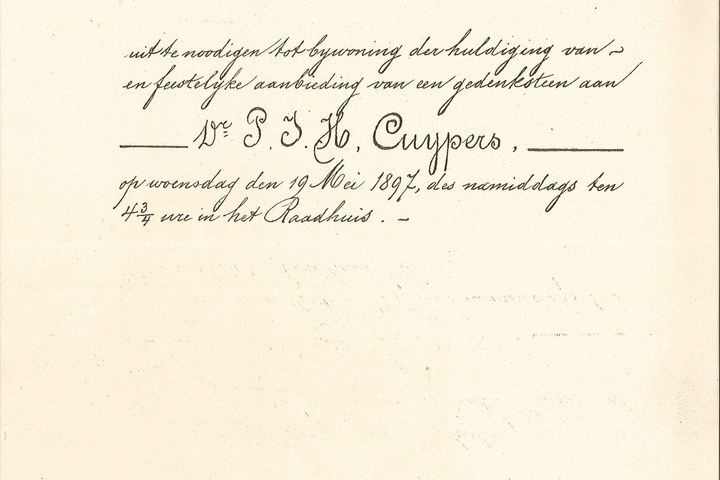 uit te noodigen tot bywoning der huldiging van ~
en feestelyke aanbieding van een gedenksteen aan
Dr. P. J. H. Cuypers,
op woensdag den 19 Mei 1897, des namiddags ten
4 3/4 ure in het Raadhuis. –